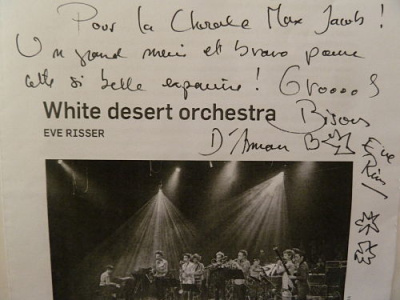 Pour la Chorale Max Jacob !
Un grand merci et bravo pour
cette si belle expérience ! Groooos
Bisous
White desert orchestra
EVE RISSER
Eve